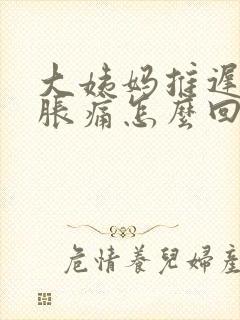 大姨妈推遲
脹痛怎麼回
危情養兒婦產